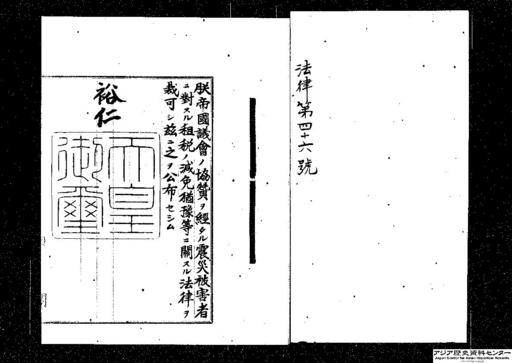 法律第四十六號
朕帝國議會ノ協贊ヲ經タル震災被害者
ニ對スル租税ノ減免猶豫等ニ關スル法律ヲ
裁可シ茲ニ之ヲ公布セシム
裕仁
天皇
御璽
アジア歴史資料センター
Japan Center for Asian Historical Records